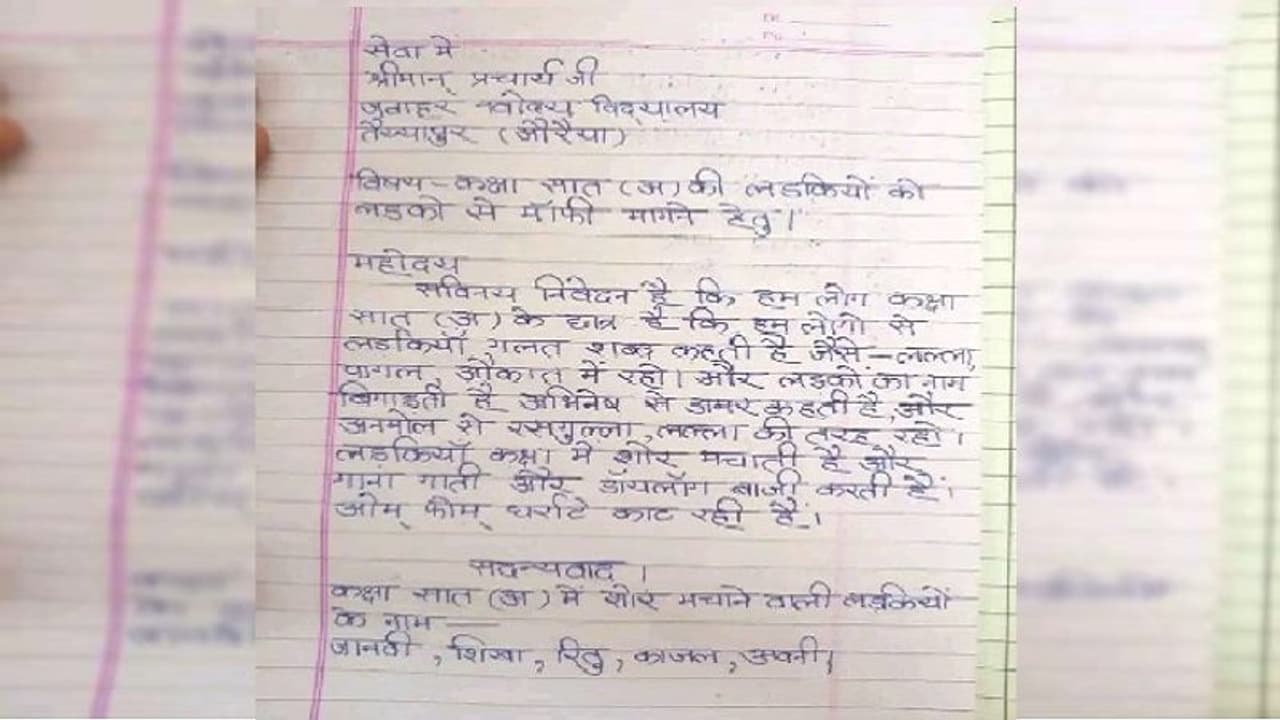 सेवा मे
श्रीमान् प्रचार्य जी
जवाहर नवोदय विद्यालय
तैय्यापुर (औरैया)
विषय - कक्षा सात (अ) की लडकियों को
लडको से मॉफी मागने हेतु।
महोदय
सविनय निवेदन है कि हम लोग कक्षा
सात (अ) के छात्र है कि हम लोगो से
लडकियाँ गलत शब्द कहती है जैसे - लल्ला,
पागल, औकात में रहो। और लडको का नाम
बिगाडती है अभिनेष से डामर कहती है, और
अनमोल से रसगुल्ला, लल्ला की तरह रहो।
लडकियाँ कक्षा मे शोर मचाती है और
गाना गाती और डॉयलॉग बाजी करती हैं।
ओम् फोम् धर्राटे काट रही है।
सधन्यवाद ।
कक्षा सात (अ) में शोर मचाने वाली लडकियों
के नाम —
जानवी, शिखा, रितु, काजल, अवनी,